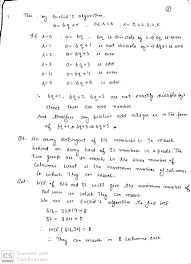 Then, by Euclid's algorithm,
a = 6q + r, 0 ≤ r < 6, r = 0, 1, 2, 3, 4, 5.
If r = 0 a = 6q
r = 1 a = 6q + 1 is not divisible by 2
r = 2 a = 6q + 2 is even
r = 3 a = 6q + 3 is odd
r = 4 a = 6q + 4 is even
r = 5 a = 6q + 5 is odd
∴ 6q + 1, 6q + 3, 6q + 5 are not exactly divisible by 2
Hence these are odd number.
And therefore any positive odd integer is in the form
of 6q + 1, 6q + 3, or 6q + 5
An army contingent of 616 members is to march
behind an army band of 32 members in a parade. The
two groups are to march in the same number of
columns. What is the maximum number of columns
in which they can march.
Sol: HCF of 616 and 32 will give the maximum number of
columns in which they can march.
We can use Euclid's algorithm to find HCF
616 = 32 × 19 + 8
32 = 8 × 4 + 0
∴ HCF (616, 32) = 8
∴ They can march in 8 columns each
CS Scanned with
CamScanner